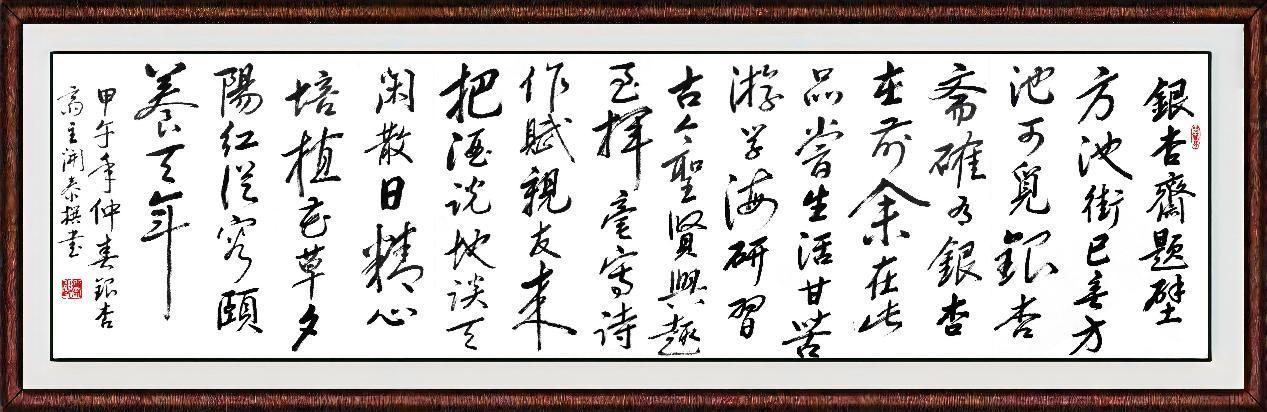 銀杏齋題壁
方池街已無方
池可覓銀杏
斋確有銀杏
在前余在此
品嘗生活甘苦
游学海研習
古今聖賢興趣
至揮毫寫詩
作賦親友来
把酒说地談天
闲散日精心
培植花草夕
陽红從容頤
養天年
甲午年仲春銀杏
斋主開泰撰書